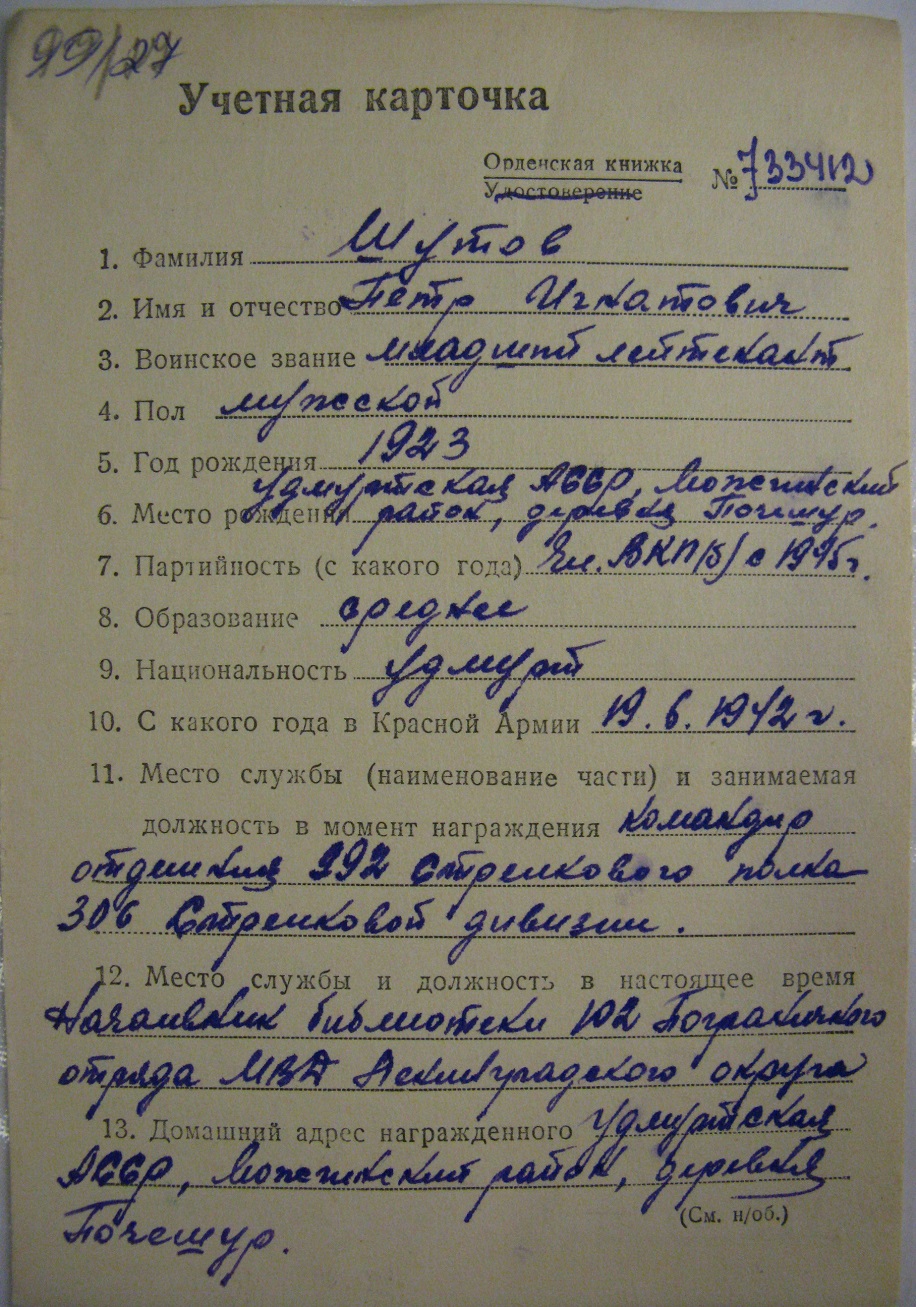 99/27
Учетная карточка
Орденская книжка
Удостоверение
№ 733412
1. Фамилия Шутов
2. Имя и отчество Петр Игнатович
3. Воинское звание младший лейтенант
4. Пол мужской
5. Год рождения 1923
Удмуртская АССР, Можгинский
6. Место рождения район, деревня Почешур.
7. Партийность (с какого года) Чл. ВКП(б) с 1945г.
8. Образование среднее
9. Национальность удмурт
10. С какого года в Красной Армии 19.6.1942 г.
11. Место службы (наименование части) и занимаемая
должность в момент награждения командир
отделения 992 Стрелкового полка
306 Стрелковой дивизии.
12. Место службы и должность в настоящее время
Начальник библиотеки 102 Пограничного
отряда МВД Ленинградского округа
13. Домашний адрес награжденного Удмуртская
АССР, Можгинский район, деревня
(См. н/об.)
Почешур.